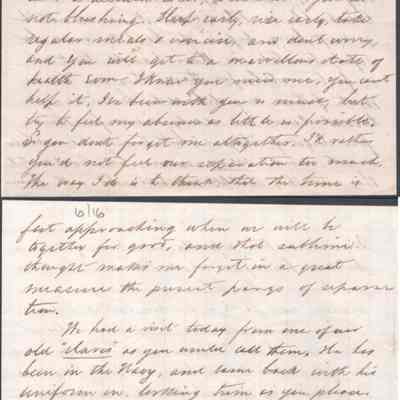 not blushing. Sleep early, rise early, take
regular meals & exercise, and dont worry,
and you will get to a marvellous state of
health soon. I know you miss me, you cant
help it, I've been with you so much, but
try to feel my absence as little as possible.
So you dont forget me altogether. I'd rather
you'd not feel our separation too much.
The way I do is to think that the time is
6/16
fast approaching when we will be
together for good, and that sublime
thought makes me forget in a great
measure the present pangs of separa-
tion.
We had a visit today from one of our
old "slaves" as you would call them. He has
been in the Navy, and came back with his
uniform on, looking trim as you please.